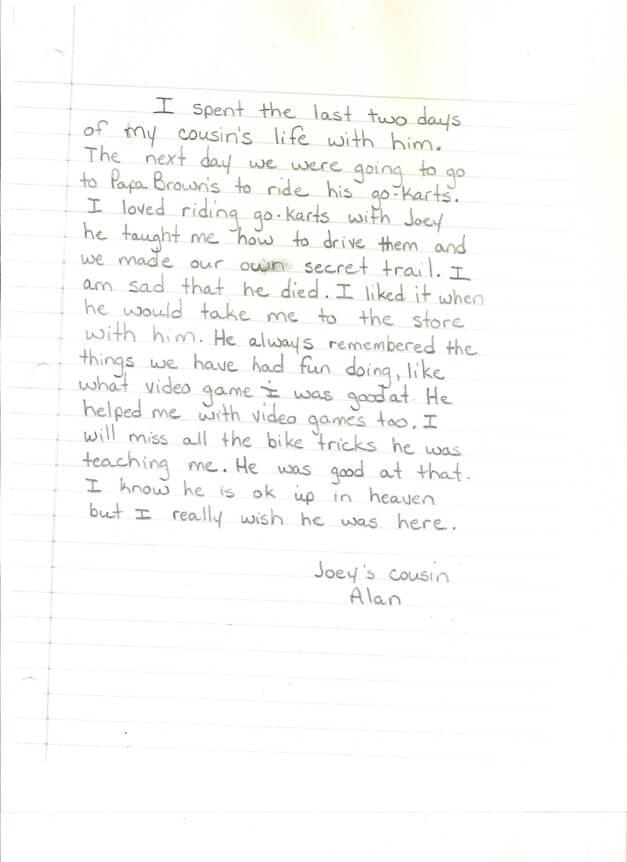 I spent the last two days
of my cousin's life with him.
The next day we were going to go
to Papa Brown's to ride his go-karts.
I loved riding go-karts with Joey
he taught me how to drive them and
we made our own secret trail. I
am sad that he died. I liked it when
he would take me to the store
with him. He always remembered the
things we have had fun doing, like
what video game I was good at. He
helped me with video games too. I
will miss all the bike tricks he was
teaching me. He was good at that.
I know he is ok up in heaven
but I really wish he was here.
Joey's cousin
Alan